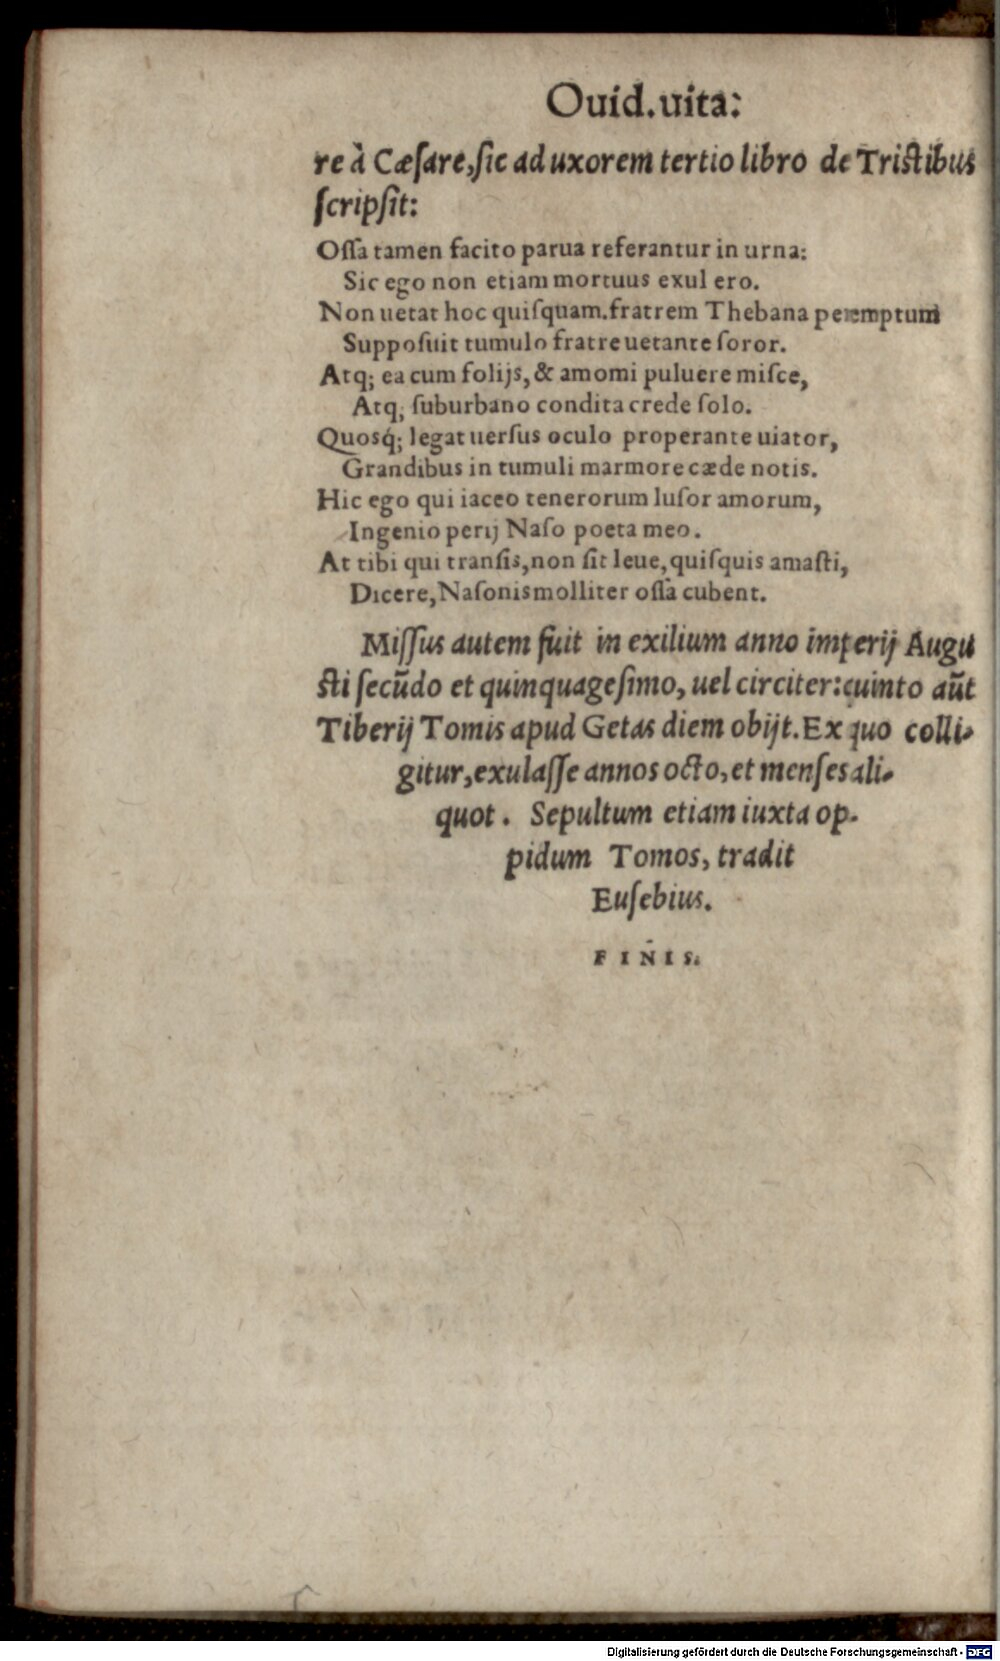 Ouid.uita:
re à Cæſare,ſic ad uxorem tertio libro de Triſtibus
ſcripſit:
Oſſa tamen facito parua referantur in urna:
Sic ego non etiam mortuus exul ero.
Non uetat hoc quiſquam.fratrem Thebana peremptum
Suppoſuit tumulo fratre uetante ſoror.
Atq; ea cum folijs, & amomi puluere miſce,
Atq; ſuburbano condita crede ſolo.
Quosq́; legat uerſus oculo properante uiator,
Grandibus in tumuli marmore cæde notis.
Hic ego qui iaceo tenerorum luſor amorum,
Ingenio perij Naſo poeta meo.
At tibi qui tranſis,non ſit leue,quiſquis amaſti,
Dicere,Naſonis molliter oſſa cubent.
Miſſus autem fuit in exilium anno imperij Augu
ſti ſecũdo et quinquageſimo, uel circiter:quinto aũt
Tiberij Tomis apud Getas diem obijt. Ex quo colli-
gitur,exulaſſe annos octo,et menſes ali-
quot. Sepultum etiam iuxta op-
pidum Tomos, tradit
Euſebius.
FINIS.
Digitalisierung gefördert durch die Deutsche Forschungsgemeinschaft - DFG